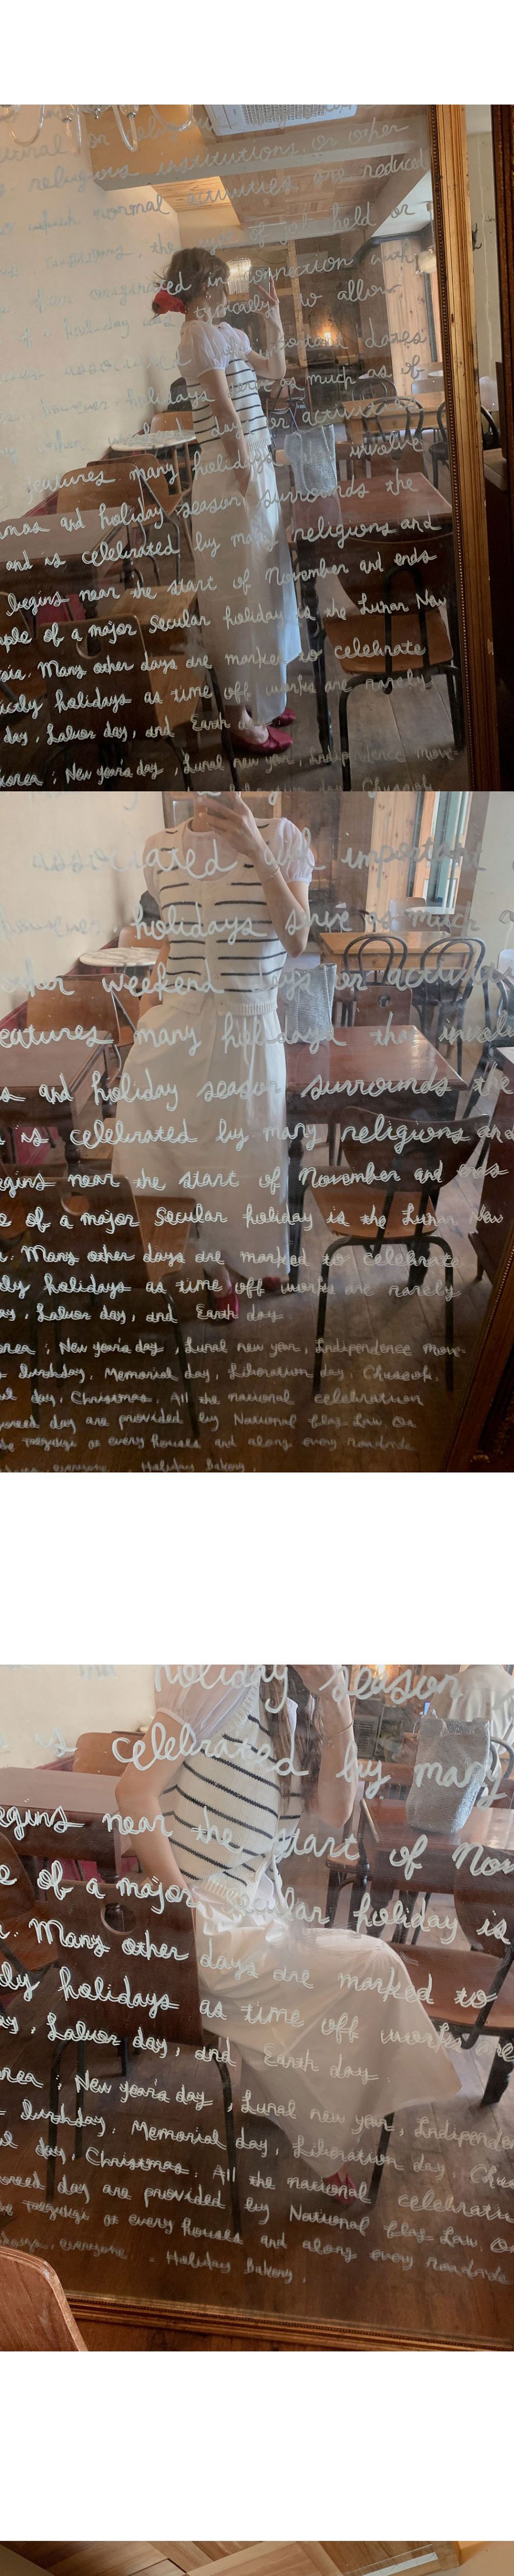 religious institutions or other
which normal activities are reduced
the type of job held or
often designated in connection with
holiday is typically to allow
associated with important dates
however, holidays serve as much as of
other weekend days or activit
features many holidays that involve
mas and holiday season surrounds the
and is celebrated by many religions and
begins near the start of November and ends
ple of a major secular holiday is the Lunar New
sia. Many other days are marked to celebrate
holidays as time off works are rarely
day, Labor day, and Earth d
korea ; New year's day , Lunal new year, Independence move-
day, Chuseok
associated with important
however, holidays serve as much a
other weekend days or activit
eatures many holidays that involv
s and holiday season surrounds the
is celebrated by many religions and
egins near the start of November and ends
e of a major secular holiday is the Lunar New
a. Many other days are marked to celebrate
ly holidays as time off works are rarely
ay, Labor day, and Earth day.
orea ; New year's day , Lunal new year, Independence move-
Birthday, Memorial day, Liberation day, Chuseok,
day, Christmas. All the national celebration
day are provided by National Flag Law. On
at every houses and along every roadside
everyone - Holiday Bakery.
holiday season
is celebrated by many
egins near the start of Nov
e of a major secular holiday is
a. Many other days are marked to
ly holidays as time off works are
ay, Labor day, and Earth day.
orea ; New year's day , Lunal new year, Independen
Birthday, Memorial day, Liberation day, Chus
day, Christmas. All the national celebratio
day are provided by National Flag Law. On
at every houses and along every roadside
everyone - Holiday Bakery.